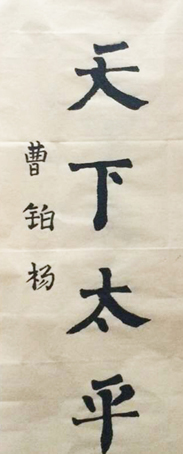 天下太平
曹铂杨